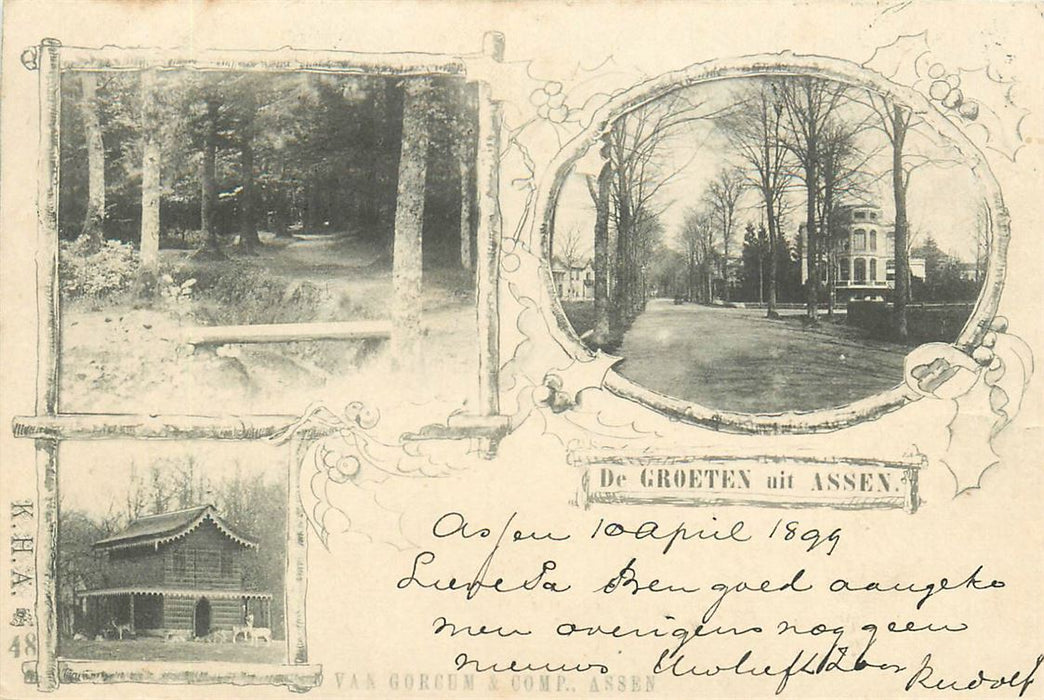 De GROETEN uit ASSEN.
Assen 10 April 1899
Lieve Pa Ben goed aangeko
men overigens nog geen
nieuws Uw liefh Zoon Rudolf
K.H.A.
48
VAN GORCUM & COMP., ASSEN